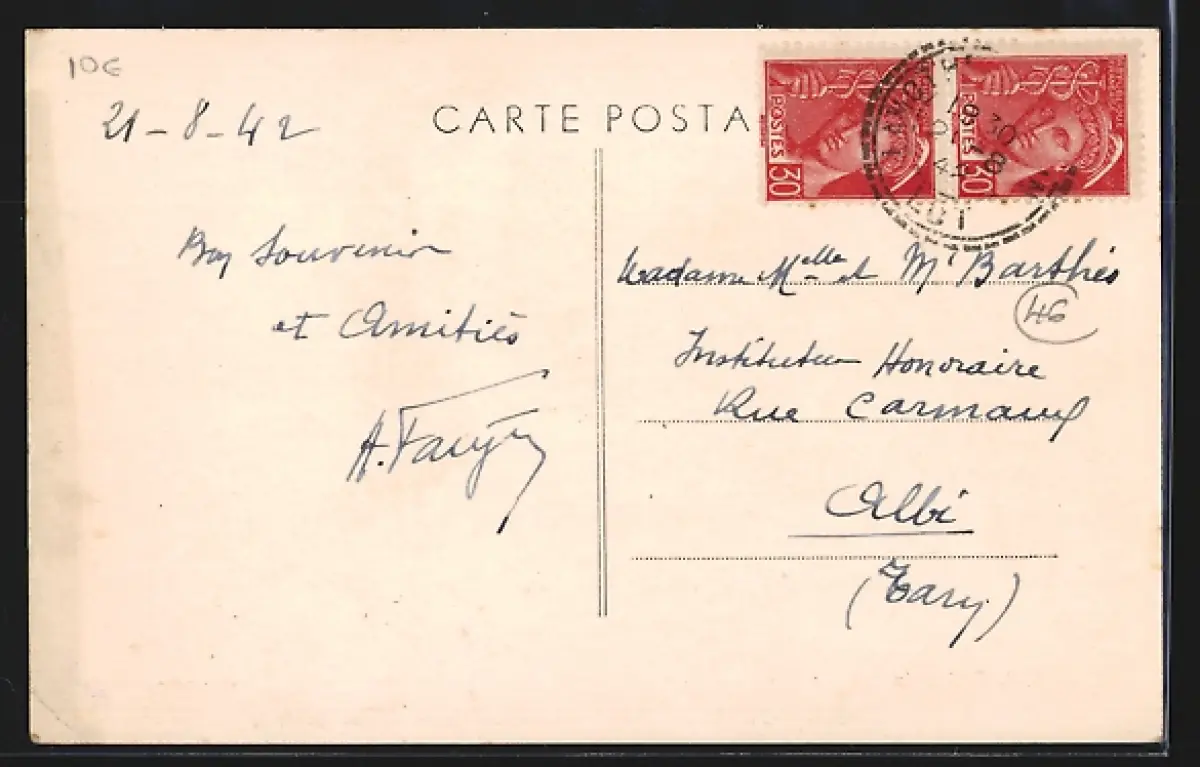 10€
21-8-42
CARTE POSTA
POSTES
30
POSTES
30
LOT
Bon Souvenir
et Amitiés
Madame Melle et Mr Barthès
46
Instituteur Honoraire
Rue Carmaux
Albi
(Tarn)